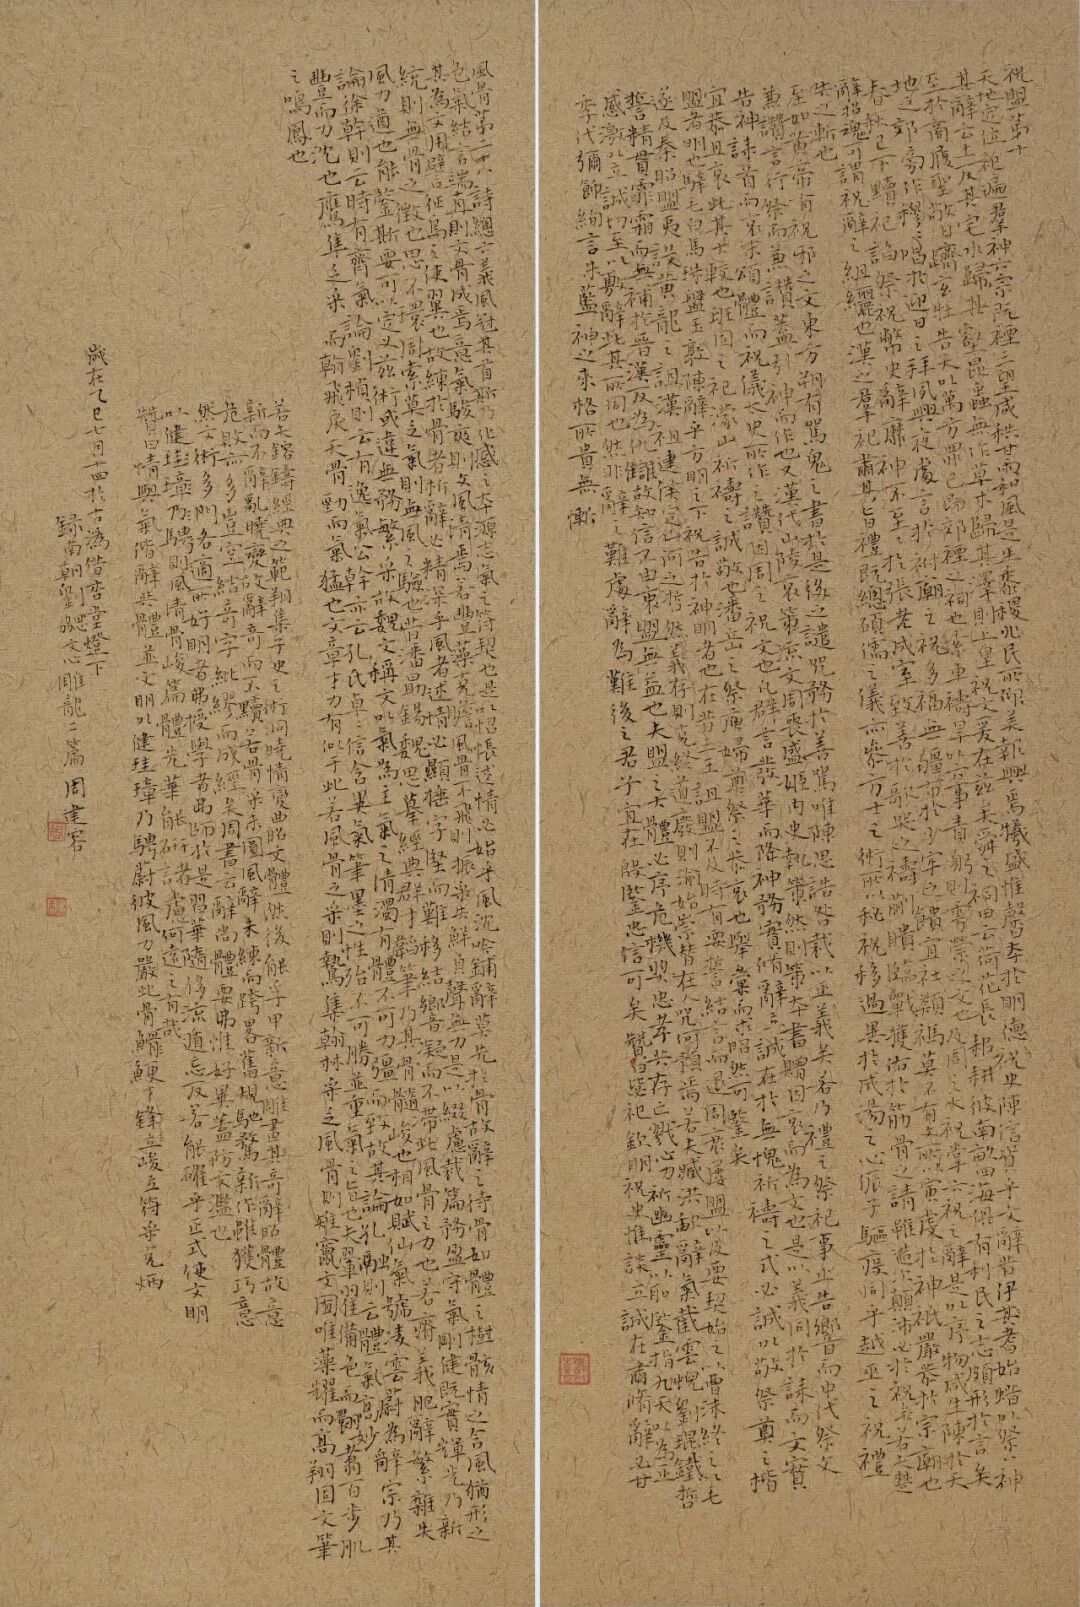 祝盟第十
天地定位祀遍羣神六宗既禋三望咸秩甘雨和風是生黍稷兆民所仰美報興焉犧盛惟馨本於明德祝史陳信資乎文辭昔伊耆始蜡以祭八神
其辭云土反其宅水歸其壑昆蟲無作草木歸其澤則上皇祝文爰在茲矣舜之祠田云荷此長耜耕彼南畝四海俱有利民之志頗形於言矣
至於商履聖敬日躋玄牡告天以萬方罪己即郊禋之詞也素車禱旱以六事責躬則雩禜之文也及周之太祝掌六祝之辭是以庶物咸生陳於天
地之郊旁作穆穆唱於迎日之拜夙興夜處言於祔廟之祝多福無疆布於少牢之饋宜社類禡莫不有文所以寅虔於神祇嚴恭於宗廟也
春秋已下黷祀諂祭祝幣史辭靡神不至至於張老成室致善於歌哭之禱蒯聵臨戰獲佑於筋骨之請雖造次顛沛必於祝矣若夫楚
辭招魂可謂祝辭之組纚也漢之羣祀肅其旨禮既總碩儒之儀亦參方士之術所以秘祝移過異於成湯之心侲子驅疫同乎越巫之祝禮
失之漸也
至如黃帝有祝邪之文東方朔有罵鬼之書於是後之譴咒務於善罵唯陳思誥咎裁以正義矣若乃禮之祭祀事止告饗而中代祭文
兼讚言行祭而兼讚蓋引神而作也又漢代山陵哀策流文周喪盛姬內史執策然則策本書贈因哀而為文也是以義同於誄而文實
告神誄首而哀末頌體而祝儀太史所作之讚因周之祝文也凡群言發華而降神務實修辭立誠在於無愧祈禱之式必誠以敬祭奠之楷
宜恭且哀此其大較也班固之祀濛山祈禱之誠敬也潘岳之祭庾婦奠祭之恭哀也舉彙而求昭然可鑒矣
盟者明也騂毛白馬珠盤玉敦陳辭乎方明之下祝告於神明者也在昔三王詛盟不及時有要誓結言而退周衰屢盟以及要契始之以曹沫終之以毛
遂及秦昭盟夷設黃龍之詛漢祖建侯定山河之誓然義存則克終道廢則渝始崇替在人咒何預焉若夫臧洪歃辭氣截雲蜺劉琨鐵誓
精貫霏霜而無補於晉漢反為仇讎故知信不由衷盟無益也夫盟之大體必序危機獎忠孝共存亡戮心力祈幽靈以取鑒指九天以為正
感激以立誠切至以敷辭此其所同也然非辭之難處辭為難後之君子宜在殷鑒忠信可矣贊曰毖祀欽明祝史惟談立誠在肅修辭必甘
季代彌飾絢言朱藍神之來格所貴無慚
風骨第二十八詩總六義風冠其首斯乃化感之本源志氣之符契也是以怊悵述情必始乎風沈吟鋪辭莫先於骨故辭之待骨如體之樹骸情之含風猶形之
包氣結言端直則文骨成焉意氣駿爽則文風清焉若豐藻克贍風骨不飛則振采失鮮負聲無力是以綴慮裁篇務盈守氣剛健既實輝光乃新
其為文用譬征鳥之使翼也故練於骨者析辭必精深乎風者述情必顯捶字堅而難移結響凝而不滯此風骨之力也若瘠義肥辭繁雜失
統則無骨之徵也思不環周索莫乏氣則無風之驗也昔潘勗錫魏思摹經典群才韜筆乃其骨髓峻也相如賦仙氣號凌雲蔚為辭宗乃其
風力遒也能鑒斯要可以定文茲術或違無務繁采故魏文稱文以氣為主氣之清濁有體不可力強而致故其論孔融則云體氣高妙
論徐幹則云時有齊氣論劉楨則云有逸氣公幹亦云孔氏卓卓信含異氣筆墨之性殆不可勝並重氣之旨也夫翬翟備色而翾翥百步肌
豐而力沈也鷹隼乏采而翰飛戾天骨勁而氣猛也文章才力有似于此若風骨乏采則鷙集翰林采乏風骨則雉竄文囿唯藻耀而高翔固文筆
之鳴鳳也
若夫鎔鑄經典之範翔集子史之術洞曉情變曲昭文體然後能孚甲新意雕畫其奇辭昭體故意
新而不亂曉變故辭奇而不黷若骨采未圓風辭未練而跨略舊規馳騖新作雖獲巧意
危敗亦多豈空結奇字紕繆而成經矣周書云辭尚體要弗惟好異蓋防文濫也
然文術多門各適所好明者弗授學者弗師於是習華隨侈流遁忘反若能確乎正式使文明
以健珪璋乃騁則風清骨峻篇體光華能研諸慮何遠之有哉
贊曰情與氣偕辭共體並文明以健珪璋乃騁蔚彼風力嚴此骨鯁才鋒立峻立符采克炳
歲在乙巳七月十四於古溈偕杏堂燈下
錄南朝劉勰文心雕龍二篇周建容